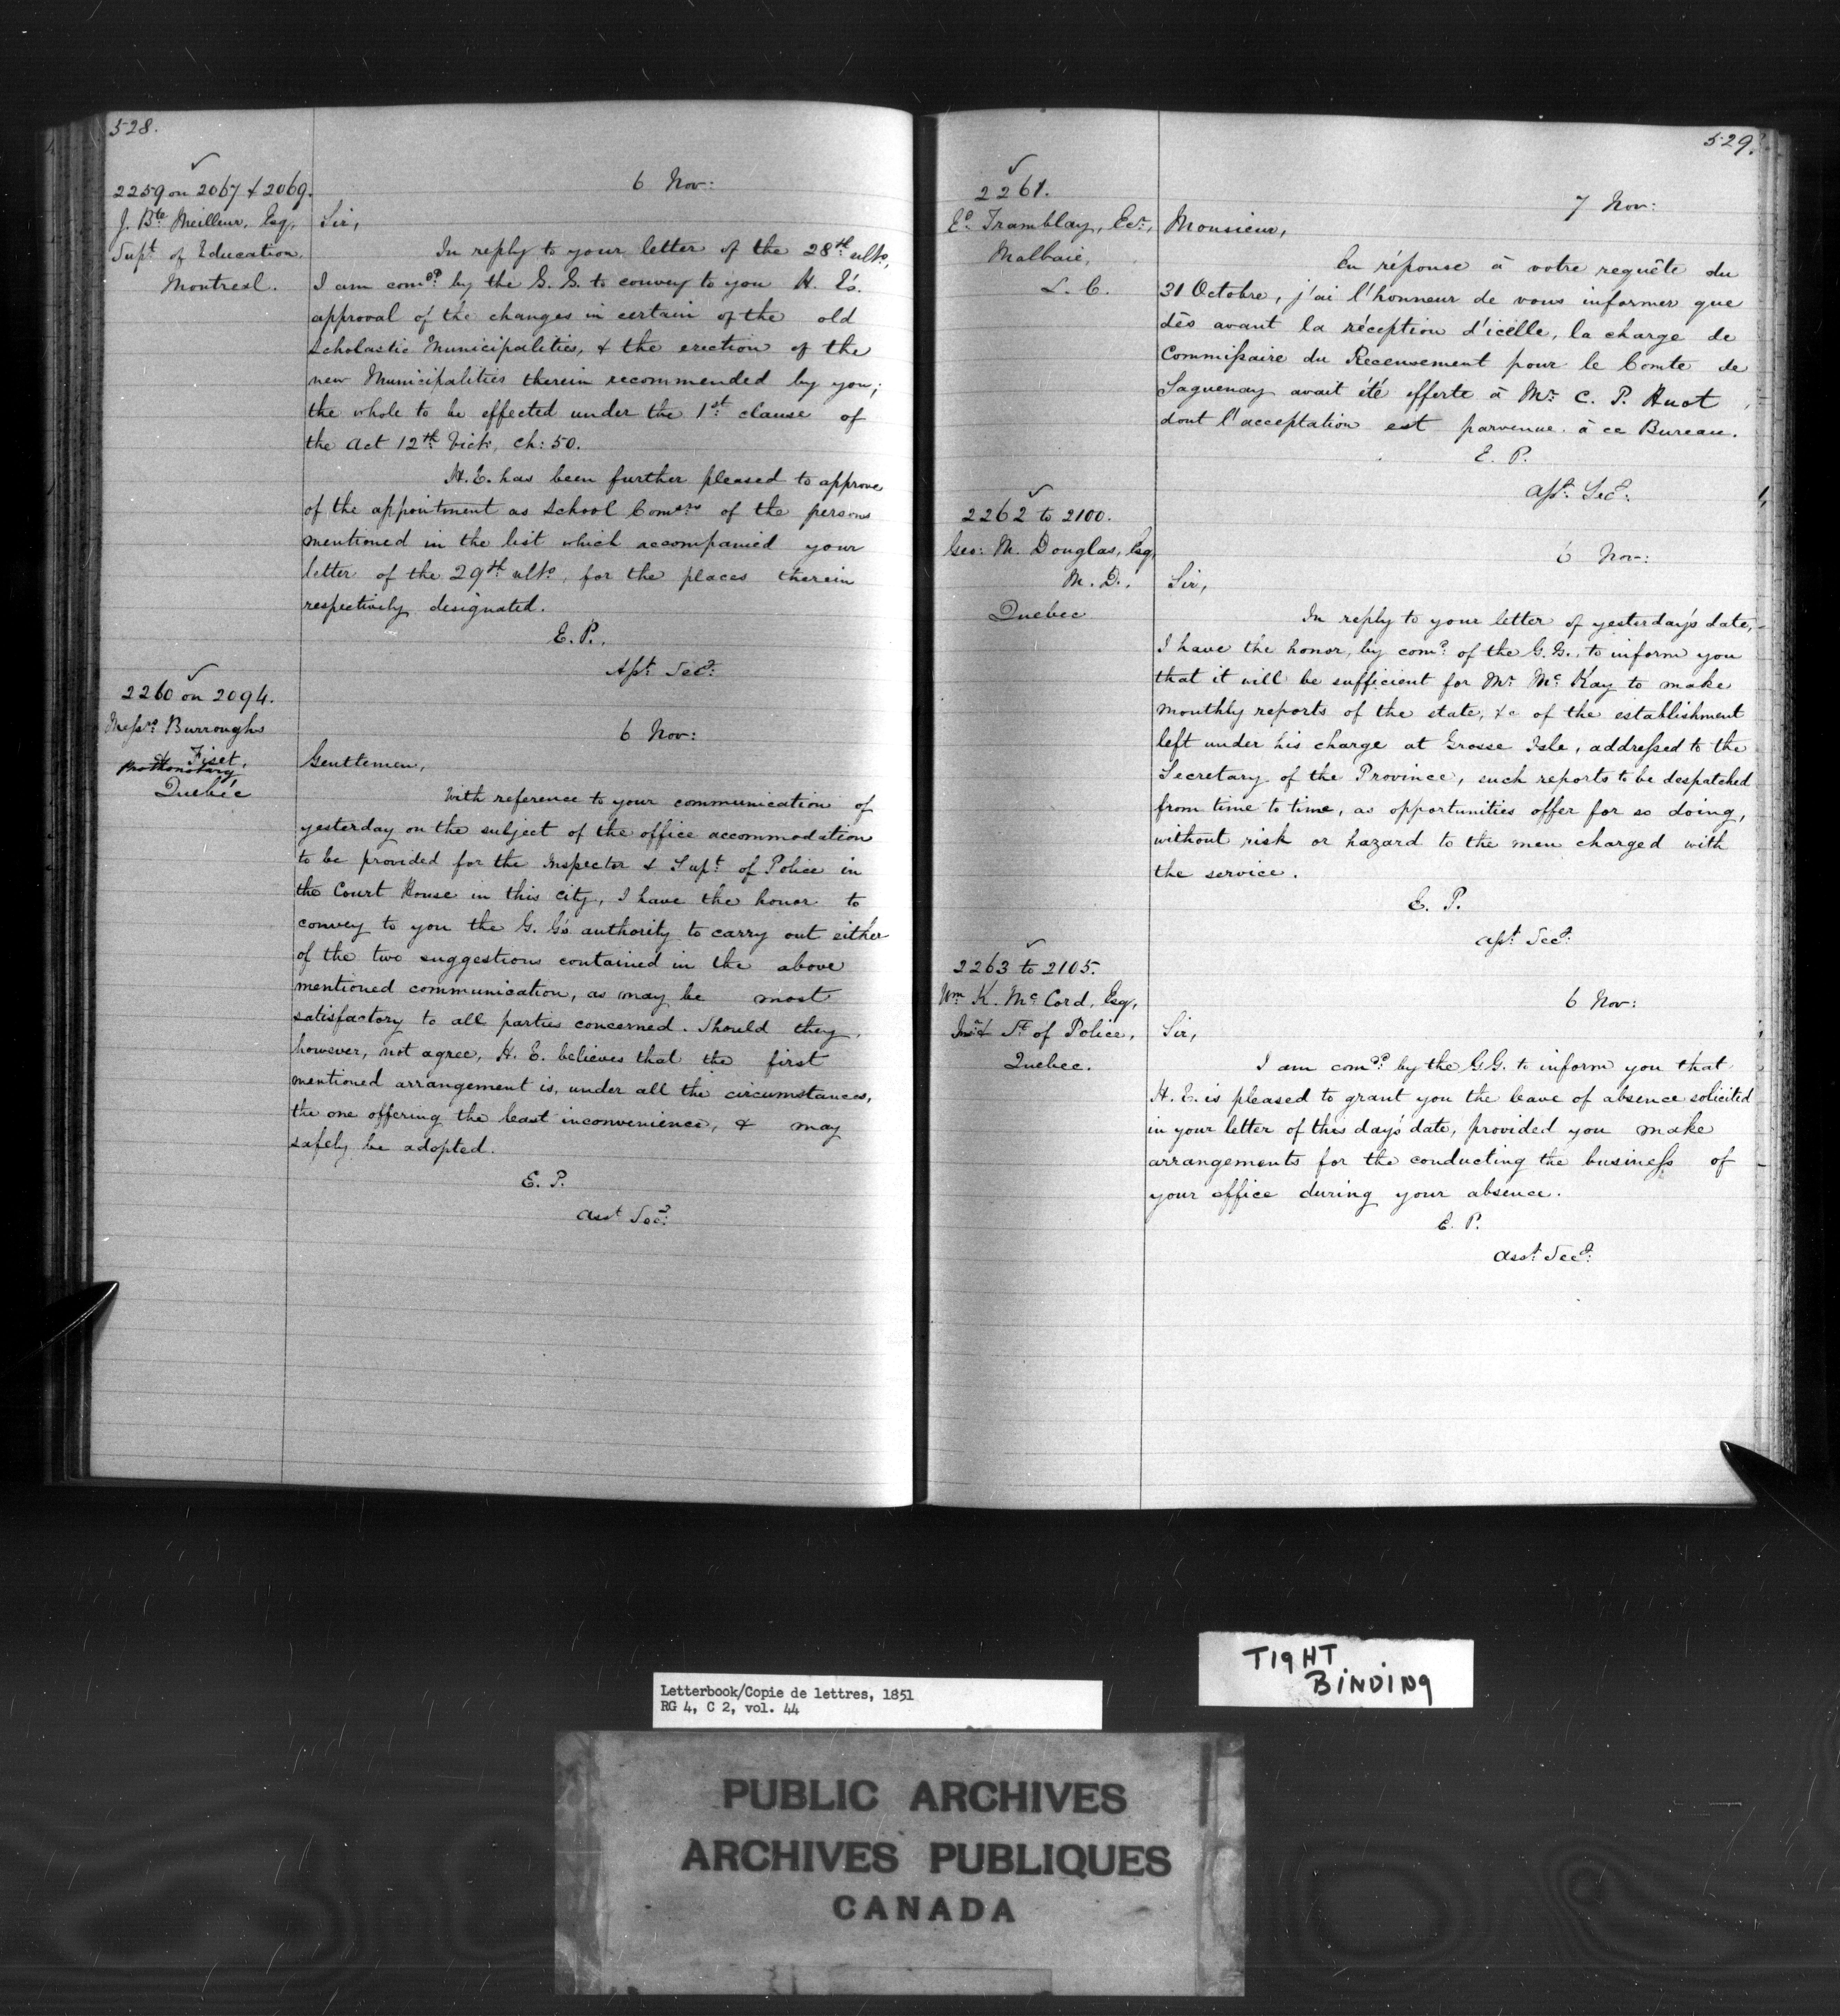 528.
2259 on 2067 & 2069.
J. Bte Meilleur, Esq,
Supt of Education,
Montreal.
6 Nov:
Sir,
In reply to your letter of the 28th ulto,
I am comd by the G. G. to convey to you H. E's.
approval of the changes in certain of the old
Scholastic Municipalities, & the erection of the
new Municipalities therein recommended by you;
the whole to be effected under the 1st clause of
the Act 12th Vict, ch: 50.
H. E. has been further pleased to approve
of the appointment as School Comers of the persons
mentioned in the list which accompanied your
letter of the 29th ulto, for the places therein
respectively designated.
E. P.,
Asst Secy:
2260 on 2094.
Messrs Burroughs
& Fiset,
Prothonotary,
Quebec
6 Nov:
Gentlemen,
With reference to your communication of
yesterday on the subject of the office accommodation
to be provided for the Inspector & Supt of Police in
the Court House in this city, I have the honor to
convey to you the G. G's authority to carry out either
of the two suggestions contained in the above
mentioned communication, as may be most
satisfactory to all parties concerned. Should they,
however, not agree, H. E. believes that the first
mentioned arrangement is, under all the circumstances,
the one offering the least inconvenience, & may
safely be adopted.
E. P.
Asst Secy:
529.
2261.
Ed. Tramblay, Ecr,
Malbaie,
L. C.
7 Nov:
Monsieur,
En réponse à votre requête du
31 Octobre, j'ai l'honneur de vous informer que
dès avant la réception d'icelle, la charge de
Commissaire du Recensement pour le Comte de
Saguenay avait été offerte à Mr C. P. Huot,
dont l'acceptation est parvenue à ce Bureau.
E. P.
Asst. Secy:
2262 to 2100.
Geo: M. Douglas, Esq,
M. D.,
Quebec
6 Nov:
Sir,
In reply to your letter of yesterday's date,
I have the honor, by comd of the G. G. to inform you
that it will be sufficient for Mr McKay to make
monthly reports of the state, &c of the establishment
left under his charge at Grosse Isle, addressed to the
Secretary of the Province, such reports to be despatched
from time to time, as opportunities offer for so doing,
without risk or hazard to the men charged with
the service.
E. P.
Asst Secy:
2263 to 2105.
Wm K. McCord, Esq,
& St of Police,
Quebec.
6 Nov:
Sir,
I am comd by the G.G. to inform you that
H. E. is pleased to grant you the leave of absence solicited
in your letter of this day's date, provided you make
arrangements for the conducting the business of
your office during your absence.
E. P.
Asst Secy:
TIGHT
BINDING
Letterbook/Copie de lettres, 1851
RG 4, C 2, vol. 44
PUBLIC ARCHIVES
ARCHIVES PUBLIQUES
CANADA